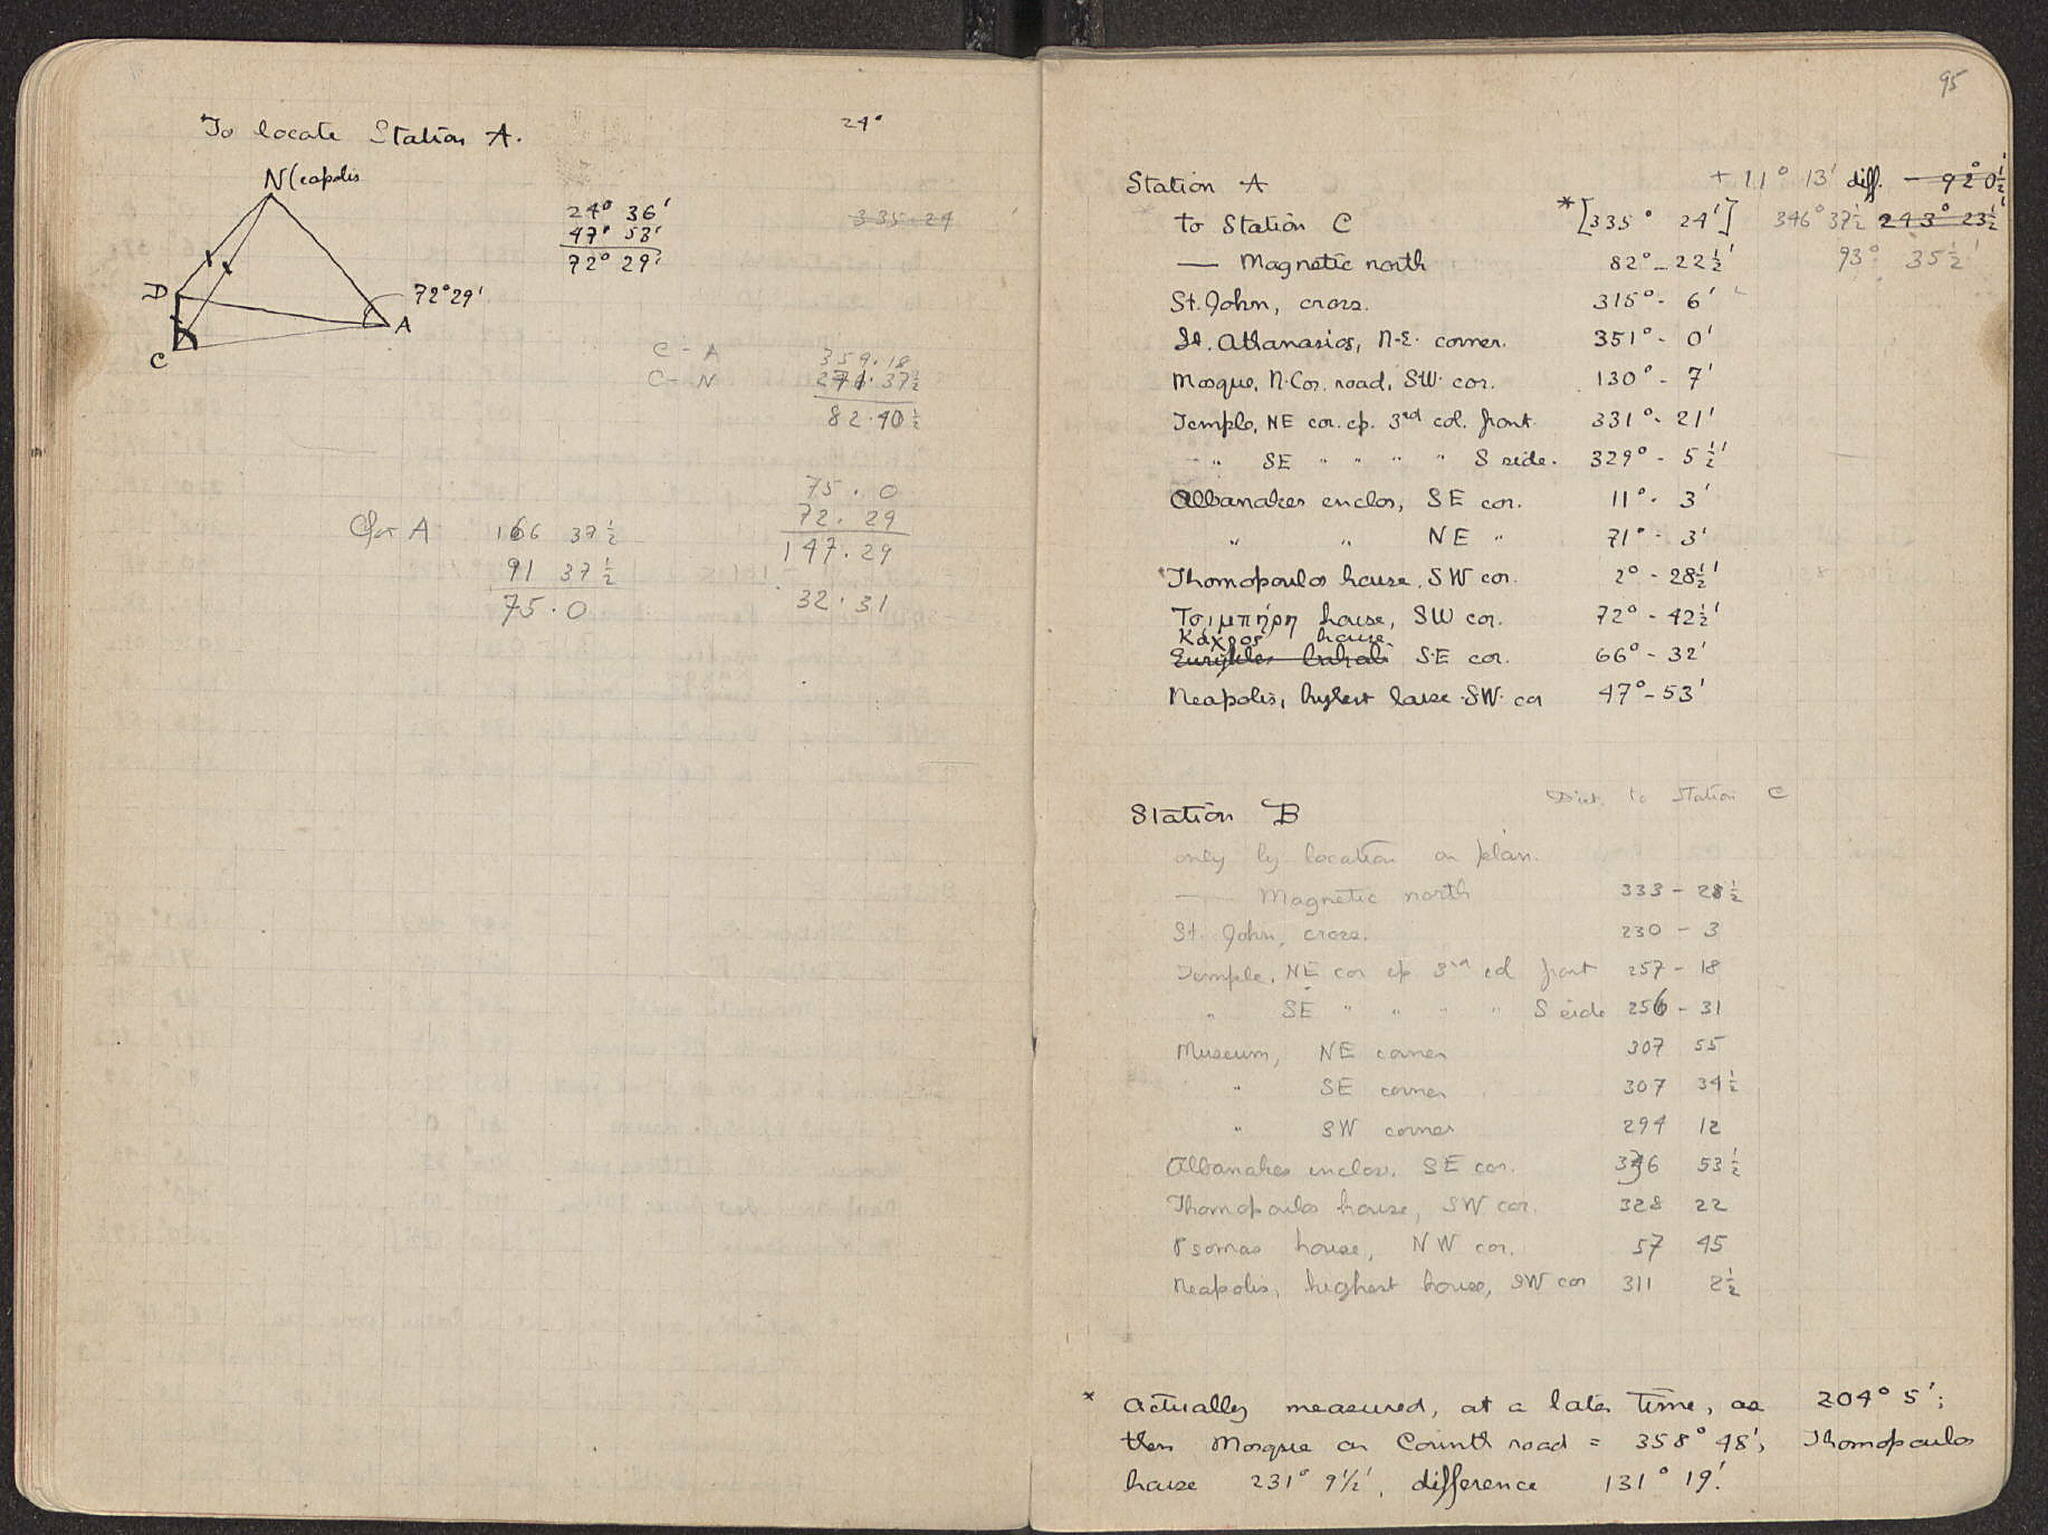 To locate Station A.
24°
N(eapolis
24° 36'
47° 53'
72° 29'
335.24
D
72° 29'
A
C
C - A 359.18
C - N 271.37½
82.40½
75. 0
72. 29
147. 29
32. 31
C for A 166 37½
91 37½
75. 0
95
Station A + 11° 13' diff. - 92° 0½'
to Station C *[335° 24'] 346° 37½ 243° 23½'
— Magnetic north 82° - 22½' 93° 35½'
St. John, cross. 315° - 6'
St. Athanasios, N.E. corner. 351° - 0'
Mosque, N. Cor. road, SW. cor. 130° - 7'
Temple, NE cor. ep. 3rd col. front. 331° - 21'
" SE " " " " S side. 329° - 5½'
Albanakes enclos, SE cor. 11° - 3'
" " NE " 71° - 3'
Thomopoulos house, SW cor. 2° - 28½'
Τσιμπήρη house, SW cor. 72° - 42½'
Κάχρος house
SE cor. 66° - 32'
Neapolis, highest house SW. cor 47° - 53'
Dist. to Station C
Station B
only by location on plan.
— Magnetic north 333 - 28½
St. John, cross. 230 - 3
Temple, NE cor ep 3rd col front 257 - 18
" SE " " " " S side 256 - 31
Museum, NE corner 307 55
" SE corner 307 34½
" SW corner 294 12
Albanakes enclos. SE cor. 336 53½
Thomopoulos house, SW cor. 328 22
Psomas house, NW cor. 57 45
Neapolis, highest house, SW cor 311 2½
* Actually measured, at a later time, as 204° 5';
then Mosque on Corinth road = 358° 48', Thomopoulos
house 231° 9½', difference 131° 19'.